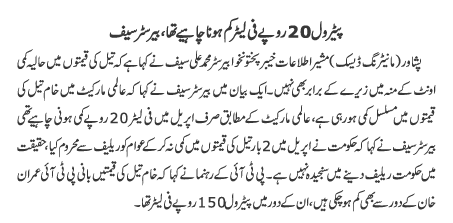 پیٹرول 20 روپے فی لیٹر کم ہونا چاہیے تھا، بیرسٹر سیف
پشاور (مانیٹرنگ ڈیسک) مشیر اطلاعات خیبر پختونخوا بیرسٹر محمد علی سیف نے کہا ہے کہ تیل کی قیمتوں میں حالیہ کمی
اونٹ کے منہ میں زیرے کے برابر بھی نہیں۔ ایک بیان میں بیرسٹر سیف نے کہا کہ عالمی مارکیٹ میں خام تیل کی
قیمتوں میں مسلسل کمی ہو رہی ہے، عالمی مارکیٹ کے مطابق صرف اپریل میں فی لیٹر 20 روپے کمی ہونی چاہیے تھی
بیرسٹر سیف نے کہا کہ حکومت نے اپریل میں 2 بار تیل کی قیمتوں میں کمی نہ کر کے عوام کو ریلیف سے محروم کیا، حقیقت
میں حکومت ریلیف دینے میں سنجیدہ نہیں ہے۔ پی ٹی آئی کے رہنما نے کہا کہ خام تیل کی قیمتیں بانی پی ٹی آئی عمران
خان کے دور سے بھی کم ہو چکی ہیں، ان کے دور میں پیٹرول 150 روپے فی لیٹر تھا۔